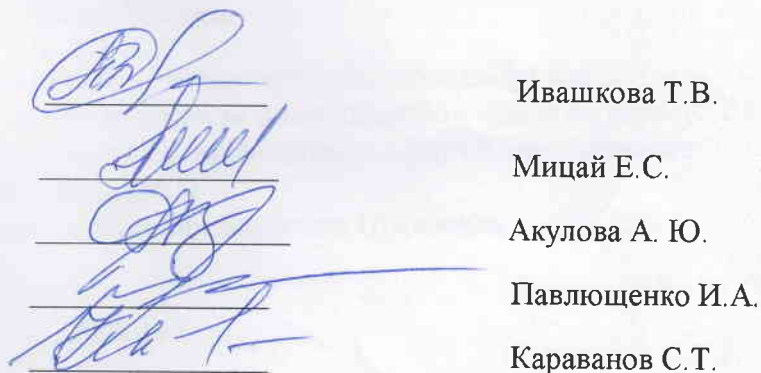 Ивашкова Т.В.
Мицай Е.С.
Акулова А. Ю.
Павлющенко И.А.
Караванов С.Т.